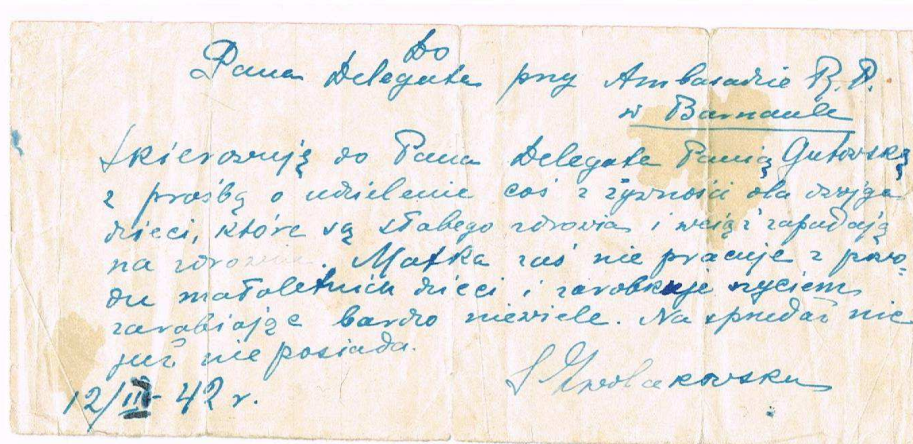 Do
Pana Delegata przy Ambasadzie R.P.
w Barnaule
Skierowuję do Pana Delegata Panią Gutowską
z prośbą o udzielenie coś z żywności dla dwojga
dzieci, które są słabego zdrowia i wciąż zapadają
na zdrowiu. Matka zaś nie pracuje z powo-
du małoletnich dzieci i zarobkuje szyciem
zarabiając bardzo niewiele. Na sprzedaż nic
już nie posiada.
12/III-42 r.